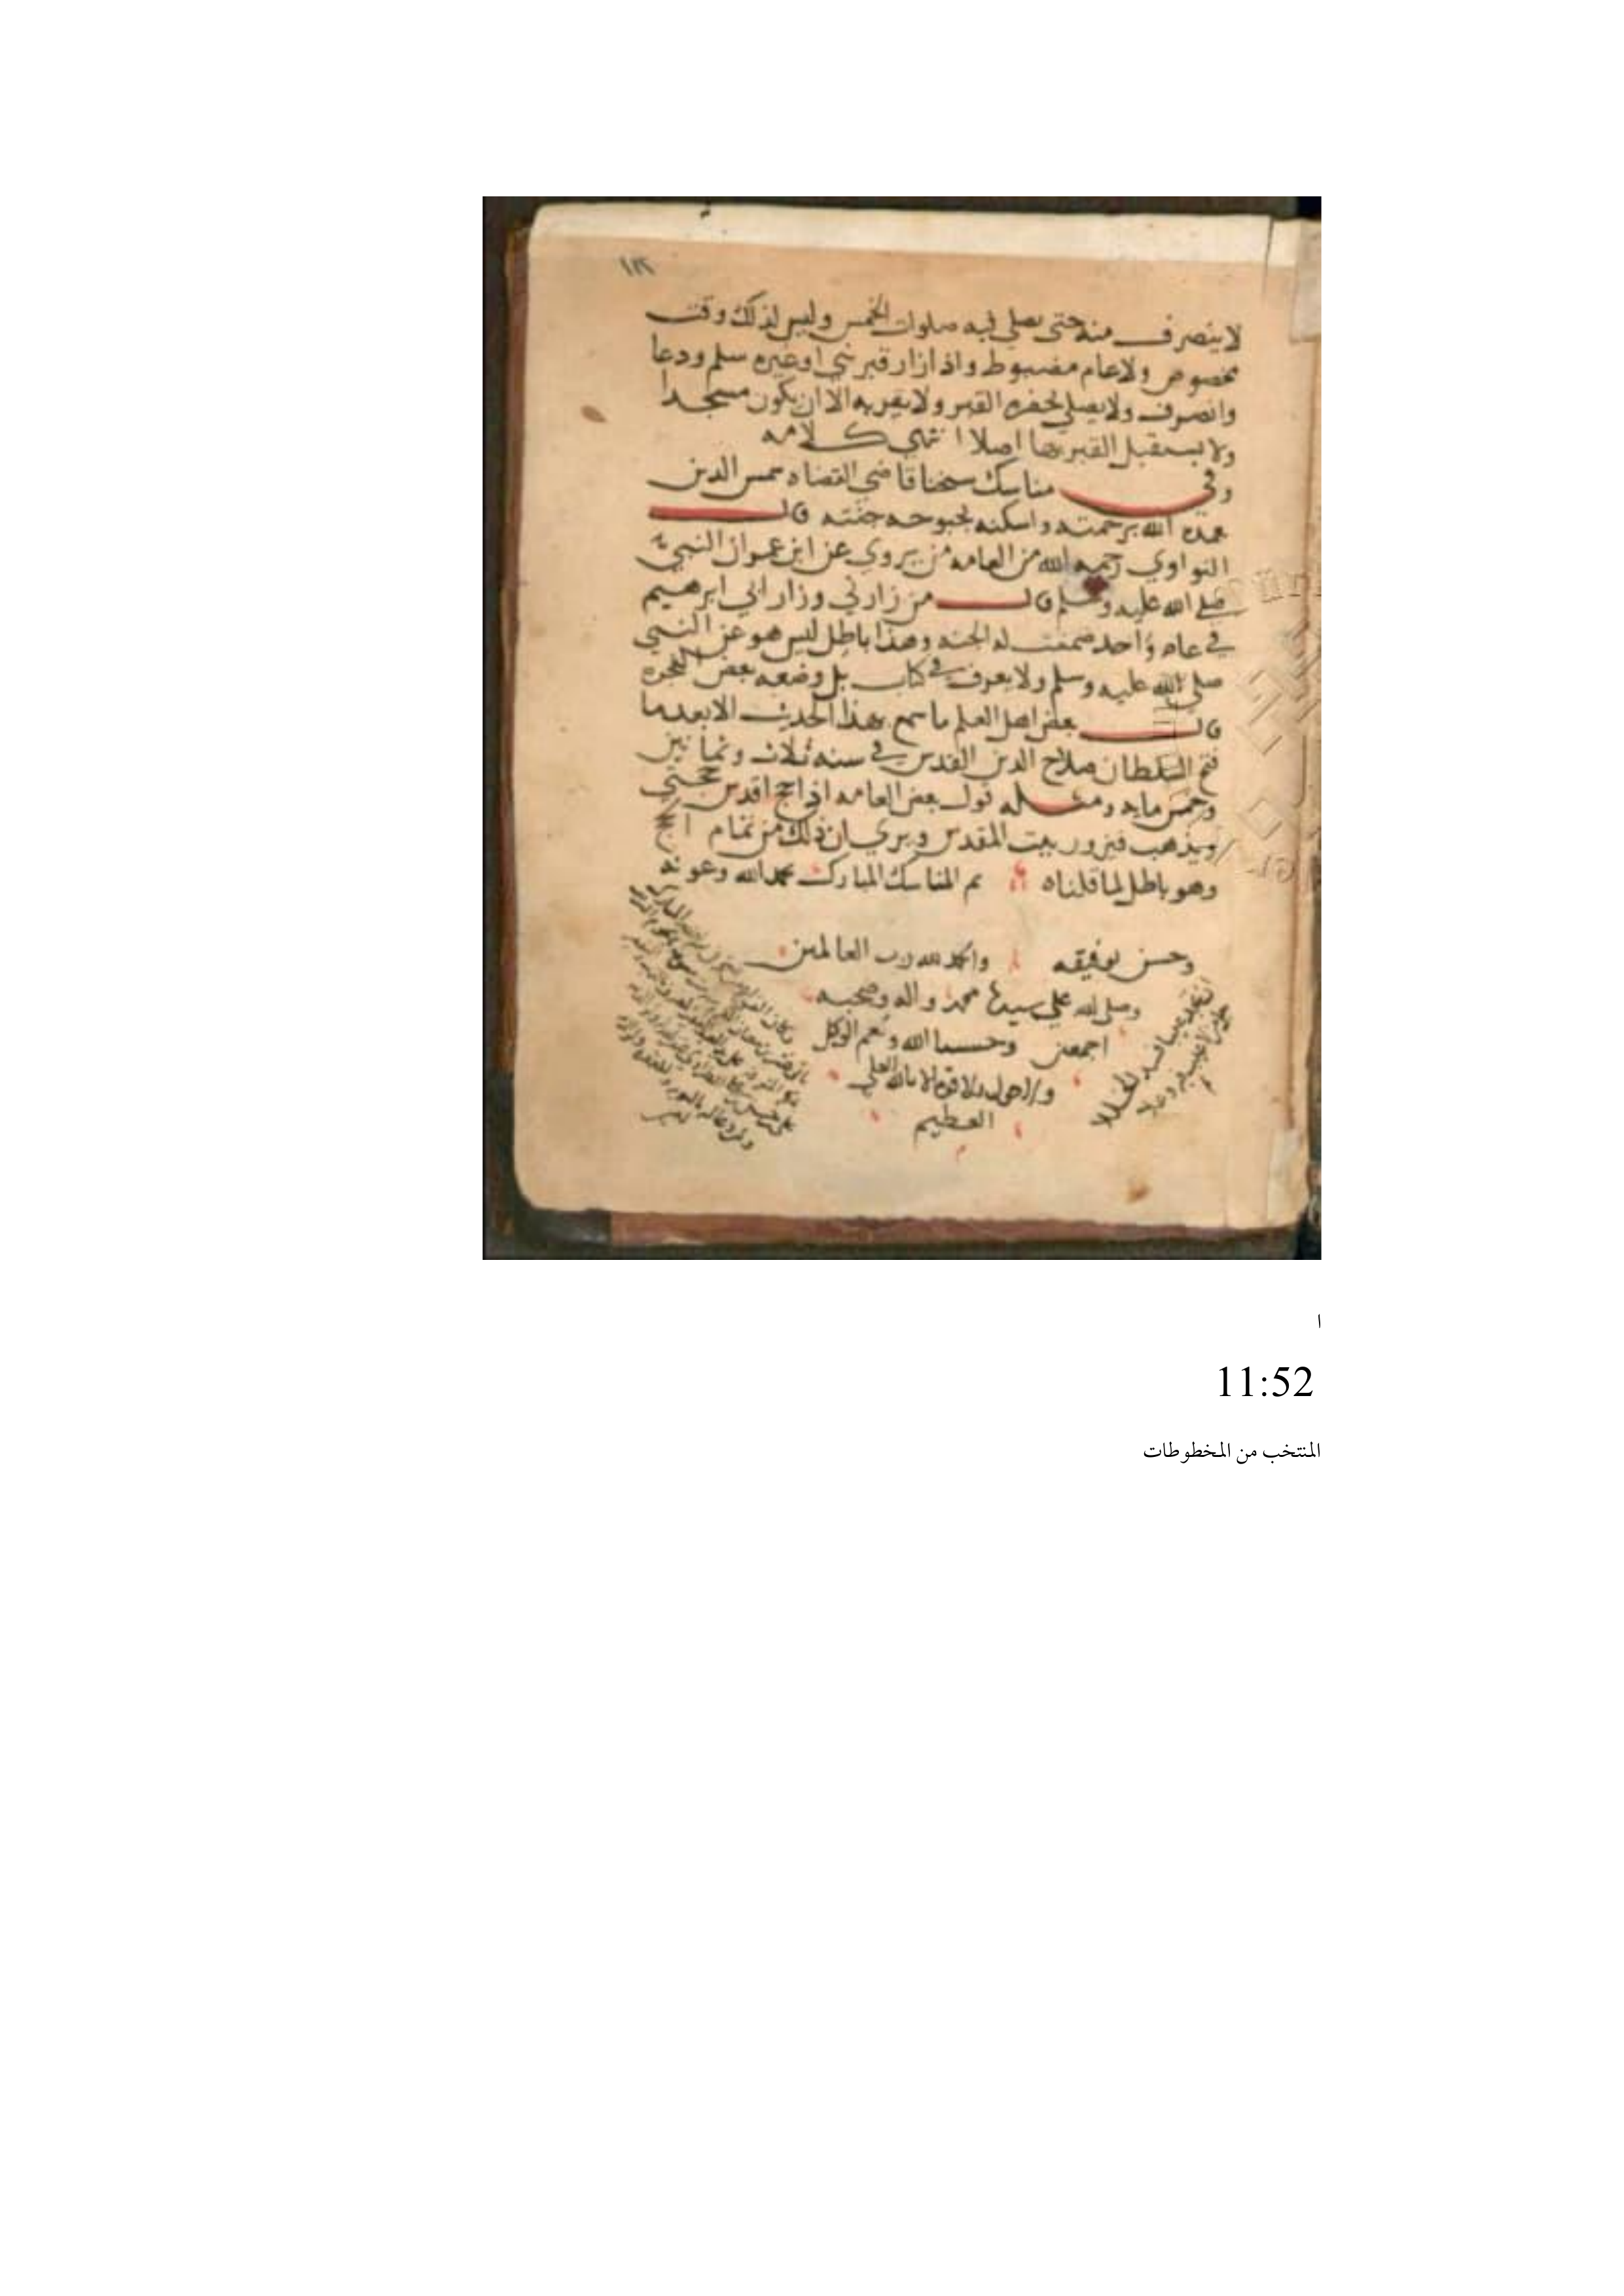 ١١٢
لا ينصرف منه حتى يصلي فيه صلوات الخمس وليس لذلك وقت
مخصوص ولا عام مضبوط واذا زار قبر نبي او غيره سلم ودعا
وانصرف ولا يصلي لحضرة القبر ولا بقربه الا ان يكون مسجدا
ولا يستقبل القبر بها اصلا انتهى كلامه
وفي مناسك شيخنا قاضي القضاه شمس الدين
تغمده الله برحمته واسكنه بحبوحه جنته قال
النواوي رحمه الله من العامه من يروي عن ابن عمر ان النبي
صلى الله عليه وسلم قال من زارني وزار ابي ابرهيم
في عام واحد ضمنت له الجنه وهذا باطل ليس هو عن النبي
صلى الله عليه وسلم ولا يعرف في كتاب بل وضعه بعض الفجره
قال بعض اهل العلم ما سمع بهذا الحديث الا بعد ما
فتح السلطان صلاح الدين القدس في سنه ثلاث وثمانين
وخمس مايه ومثله قول بعض العامه اذا حج اقدس حجتي
ويذهب فيزور بيت المقدس ويرى ان ذلك من تمام الحج
وهو باطل لما قلناه تم المناسك المبارك بحمد الله وعونه
وحسن توفيقه والحمد لله رب العالمين
وصلى الله على سيدنا محمد واله وصحبه
اجمعين وحسبنا الله ونعم الوكيل
ولا حول ولا قوه الا بالله العلي
العظيم
ا
11:52
المنتخب من المخطوطات